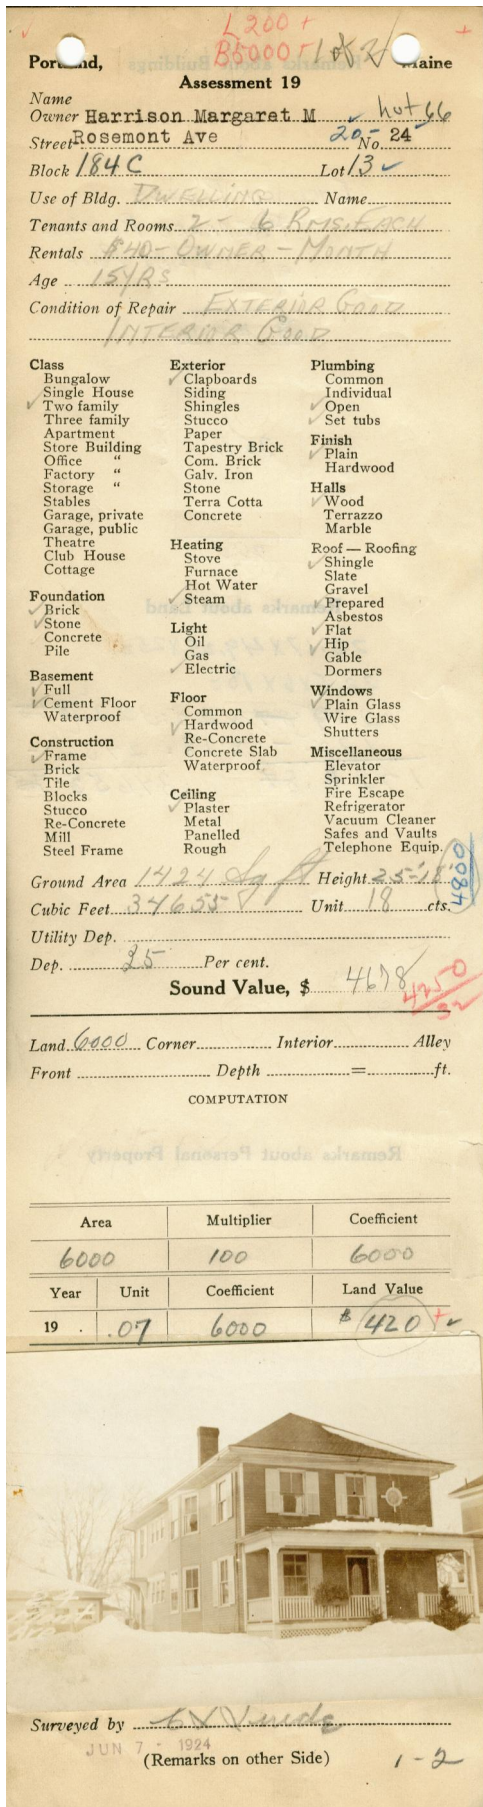 L 200 +
B 5000 + 1 of 2
Portland, Maine
Assessment 19
Name
Owner Harrison Margaret M
Street Rosemont Ave 20- No. 24
Block 184 C Lot 13
Use of Bldg. DWELLING Name
Tenants and Rooms 2 - 6 RMS. EACH
Rentals $40 - OWNER - MONTH
Age 15 YRS
Condition of Repair EXTERIOR GOOD
INTERIOR GOOD
Class
Bungalow
Single House
Two family
Three family
Apartment
Store Building
Office "
Factory "
Storage "
Stables
Garage, private
Garage, public
Theatre
Club House
Cottage
Foundation
Brick
Stone
Concrete
Pile
Basement
Full
Cement Floor
Waterproof
Construction
Frame
Brick
Tile
Blocks
Stucco
Re-Concrete
Mill
Steel Frame
Exterior
Clapboards
Siding
Shingles
Stucco
Paper
Tapestry Brick
Com. Brick
Galv. Iron
Stone
Terra Cotta
Concrete
Heating
Stove
Furnace
Hot Water
Steam
Light
Oil
Gas
Electric
Floor
Common
Hardwood
Re-Concrete
Concrete Slab
Waterproof
Ceiling
Plaster
Metal
Panelled
Rough
Plumbing
Common
Individual
Open
Set tubs
Finish
Plain
Hardwood
Halls
Wood
Terrazzo
Marble
Roof — Roofing
Shingle
Slate
Gravel
Prepared
Asbestos
Flat
Hip
Gable
Dormers
Windows
Plain Glass
Wire Glass
Shutters
Miscellaneous
Elevator
Sprinkler
Fire Escape
Refrigerator
Vacuum Cleaner
Safes and Vaults
Telephone Equip.
4800
Ground Area 1424 Sq ft Height 25'-18'
Cubic Feet 34655 Unit 18 cts.
Utility Dep.
Dep. 25 Per cent.
Sound Value, $ 4678
4250
Land 6000 Corner Interior Alley
Front Depth = ft.
COMPUTATION
Area Multiplier Coefficient
6000 100 6000
Year Unit Coefficient Land Value
19 .07 6000 $ 420 +
Surveyed by
JUN 7 - 1924
(Remarks on other Side)
1-2